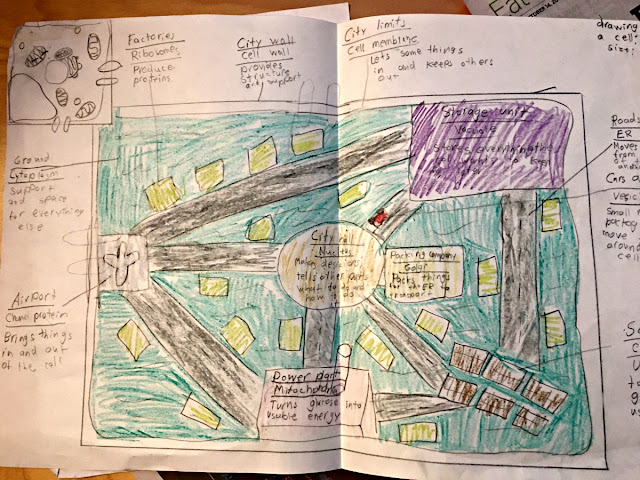 Factories
Ribosomes
Produce
proteins
City wall
cell wall
provides
structure
and support
City limits
Cell membrane
Lets some things
in and keeps others
out
drawing
a cell
Storage unit
Vacuole
Stores everything the
Roads
ER
Moves
from
Cars
Small
move
around
cell
Ground
Cytoplasm
support
and space
for everything
else
City hall
Nucleus
Makes decisions
tells other parts
what to do and
how to do
Packing company
Golgi
Pack things
for ER to
transport
Airport
Chanel protein
Brings things
in and out
of the cell
Power plant
Mitochondria
Turns glucose into
usable energy